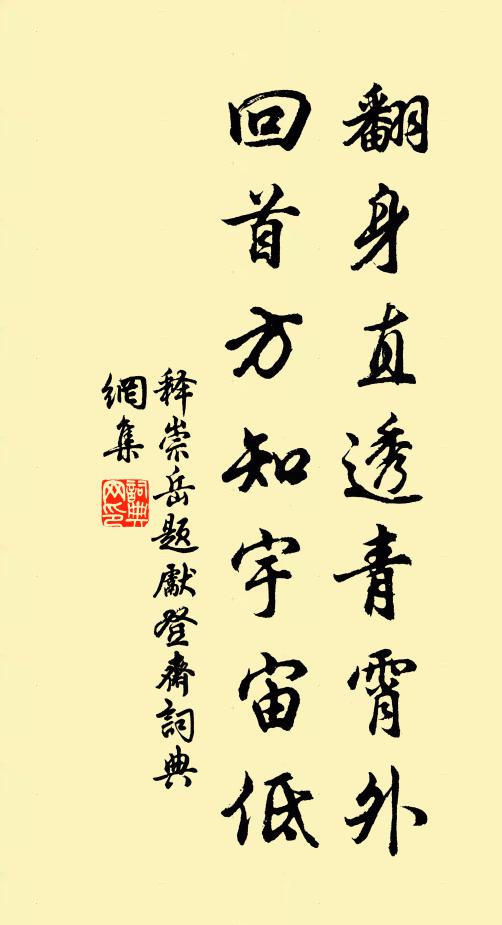 翻身直透青霄外
回首方知宇宙低
释崇岳题献登斋詞典
網集
詞典
网印